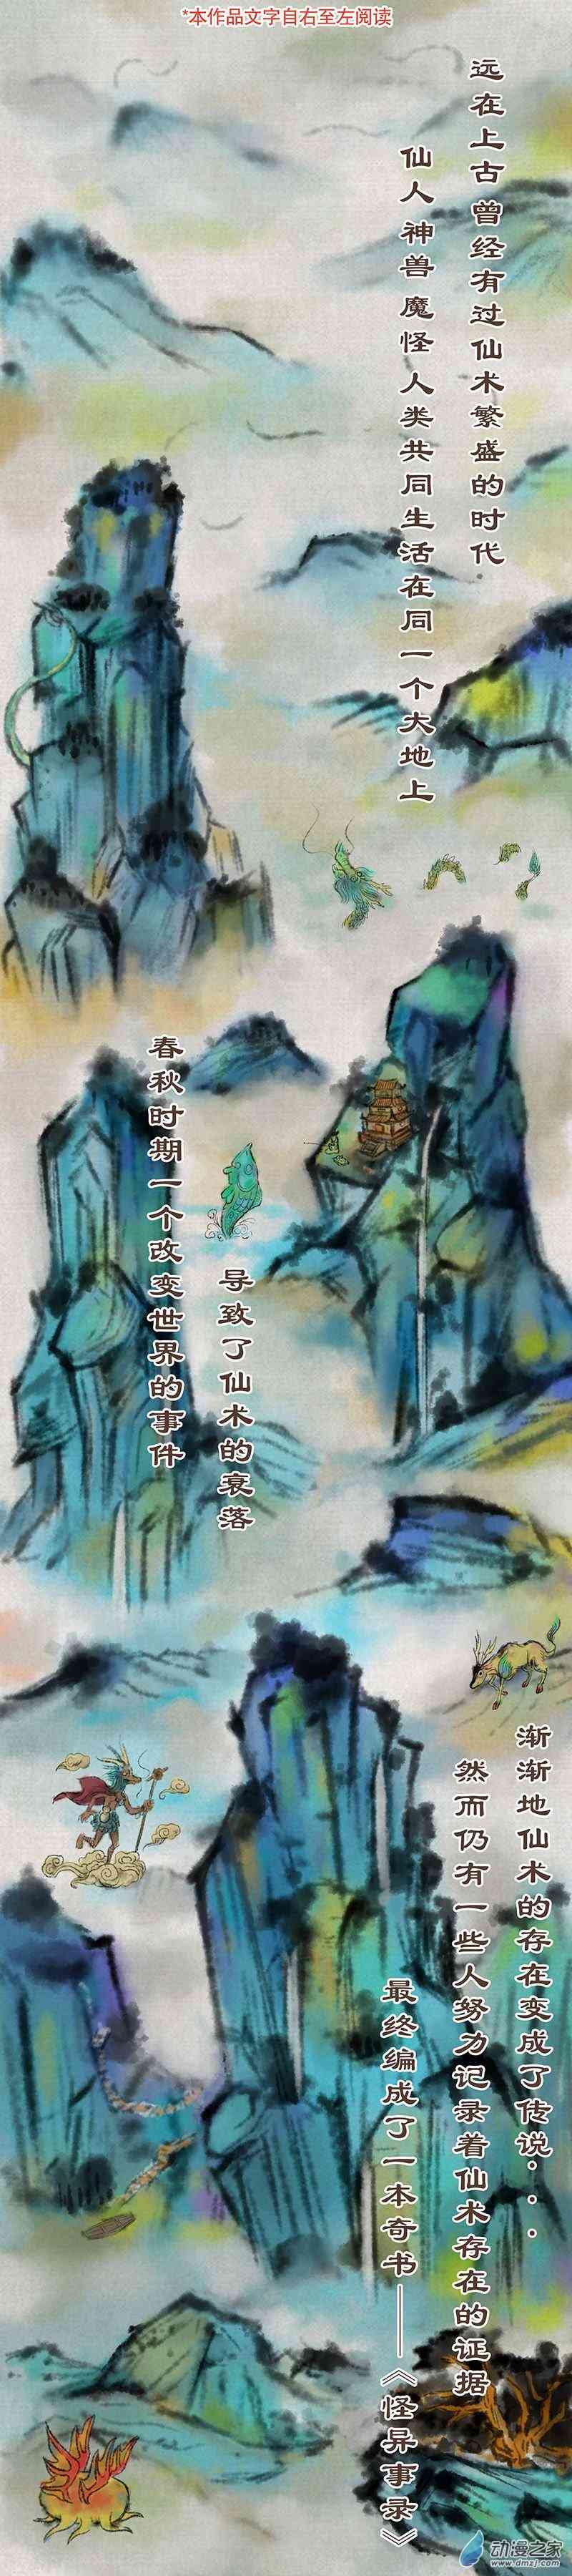 *本作品文字自右至左阅读
远在上古 曾经有过仙术繁盛的时代
仙人 神兽 魔怪 人类共同生活在同一个大地上
导致了仙术的衰落
春秋时期一个改变世界的事件
渐渐地仙术的存在变成了传说...
然而仍有一些人努力记录着仙术存在的证据
最终编成了一本奇书——《怪异事录》
动漫之家
www.dmzj.com